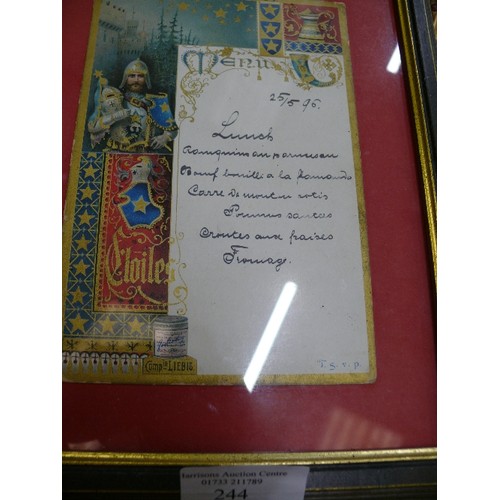 Menu
25/5 96.
Lunch
Bœuf bouille a la flamande
Carre de mouton rotis
Pommes sautes
Croutes aux fraises
Fromage.
Etoiles
Comp.ie LIEBIG
T.S.V.P.
Harrisons Auction Centre
01733 211789
244